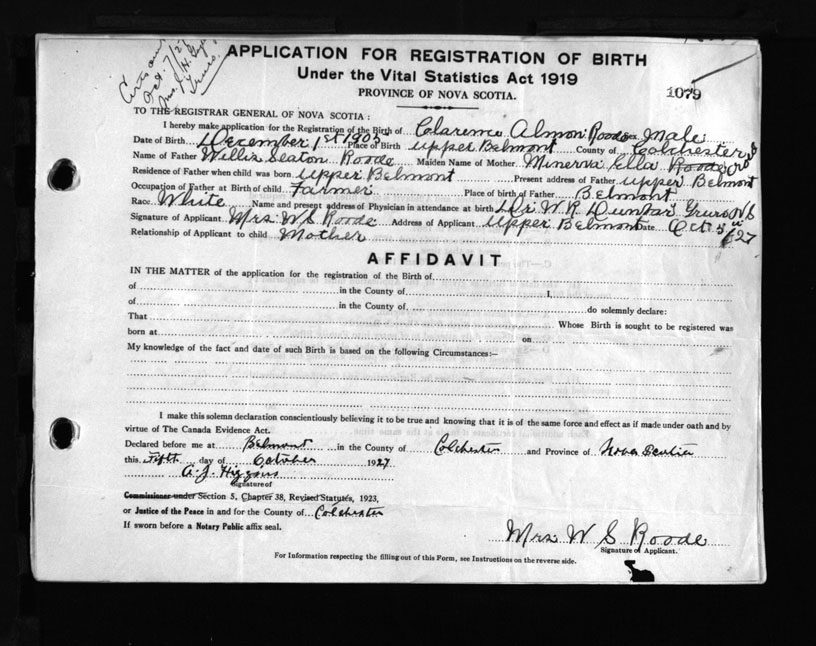 Oct. 7/27
Truro.
APPLICATION FOR REGISTRATION OF BIRTH
Under the Vital Statistics Act 1919
1079
PROVINCE OF NOVA SCOTIA.
TO THE REGISTRAR GENERAL OF NOVA SCOTIA:
I hereby make application for the Registration of the Birth of Clarence Almon Roode Sex Male
Date of Birth December 1st 1905 Place of Birth Upper Belmont County of Colchester
Name of Father Willis Seaton Roode Maiden Name of Mother Minerva Ella Roode
Residence of Father when child was born Upper Belmont Present address of Father Upper Belmont
Occupation of Father at Birth of child Farmer Place of birth of Father Belmont
Race White Name and present address of Physician in attendance at birth Dr. W. R. Dunbar Truro N S
Signature of Applicant Mrs W S Roode Address of Applicant Upper Belmont Date Oct 5th /27
Relationship of Applicant to child Mother
AFFIDAVIT
IN THE MATTER of the application for the registration of the Birth of
of in the County of I,
of in the County of do solemnly declare:
That Whose Birth is sought to be registered was
born at on
My knowledge of the fact and date of such Birth is based on the following Circumstances:—
I make this solemn declaration conscientiously believing it to be true and knowing that it is of the same force and effect as if made under oath and by
virtue of The Canada Evidence Act.
Declared before me at Belmont in the County of Colchester and Province of Nova Scotia
this Fifth day of October 1927
A. J. Higgins
Signature of
Commissioner under Section 5, Chapter 38, Revised Statutes, 1923,
or Justice of the Peace in and for the County of Colchester
If sworn before a Notary Public affix seal.
Mrs W S Roode
Signature of Applicant.
For Information respecting the filling out of this Form, see Instructions on the reverse side.